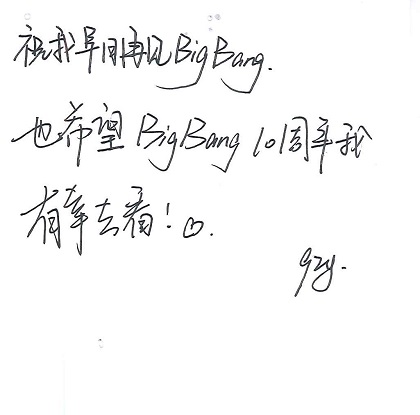 祝我早日再见BigBang.
也希望BigBang 101周年我
有幸去看!♡.
gzy.